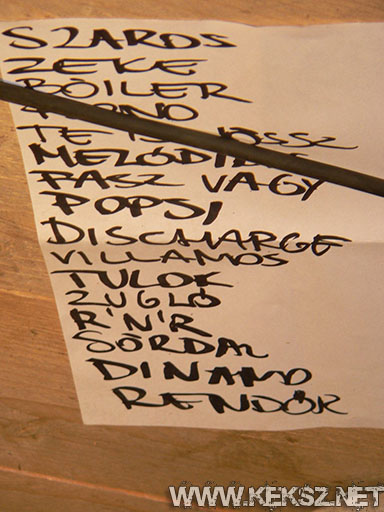 SZAROS
ZEKE
BOILER
TE
MELÓDIÁS
FASZ VAGY
POPSI
DISCHARGE
VILLAMOS
TULOK
ZUGLÓ
R'N'R
SÖRDAL
DINAMO
RENDŐR
WWW.KEKSZ.NET